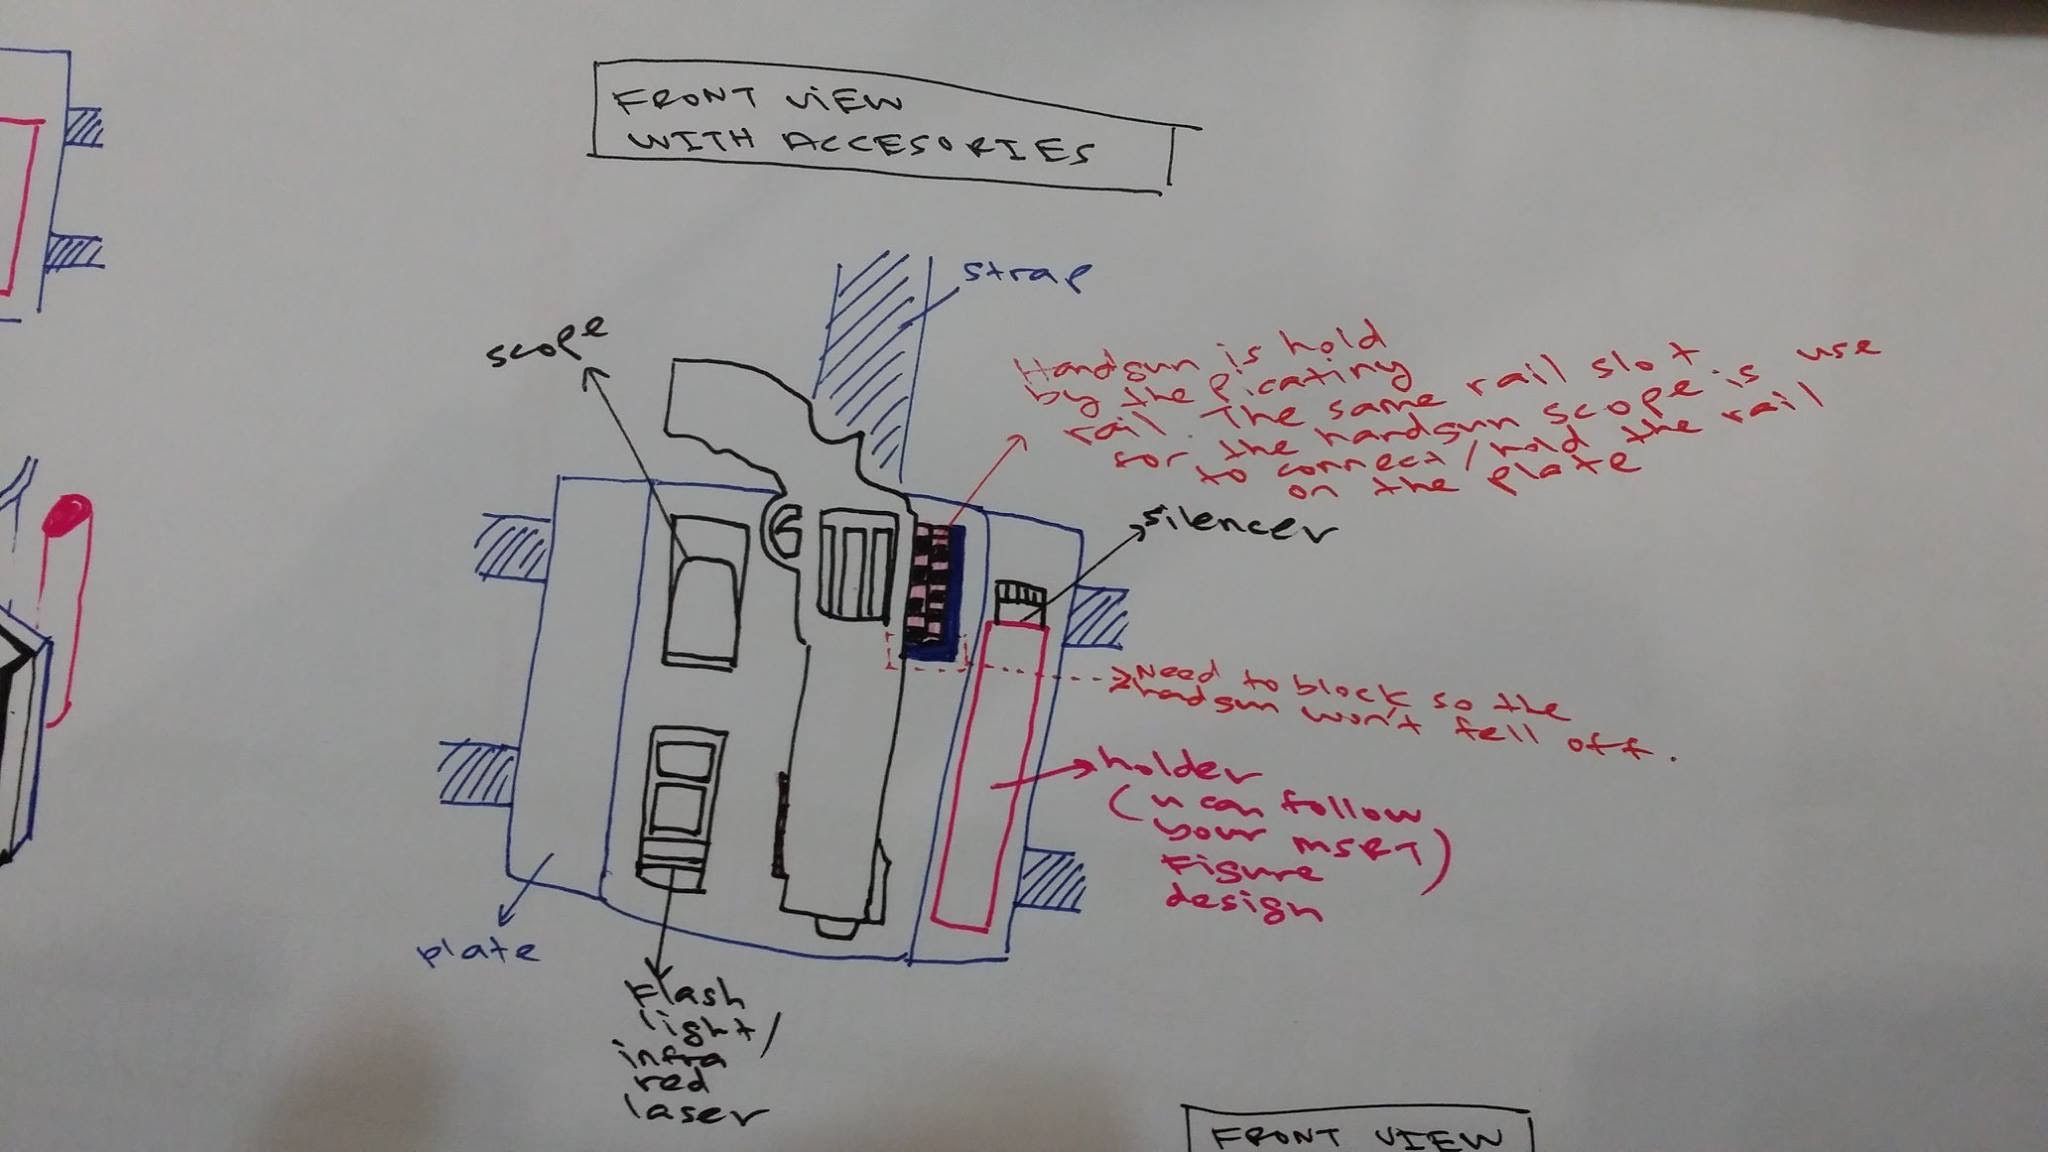 FRONT VIEW
WITH ACCESORIES
strap
scope
Handgun is hold
by the picatiny
rail. The same rail slot
for the handgun scope is use
to connect/hold the rail
on the plate
silencer
Need to block so the
handgun won't fell off.
holder
(u can follow
your MSRT)
Figure
design
plate
Flash
light/
infra
red
laser
FRONT VIEW